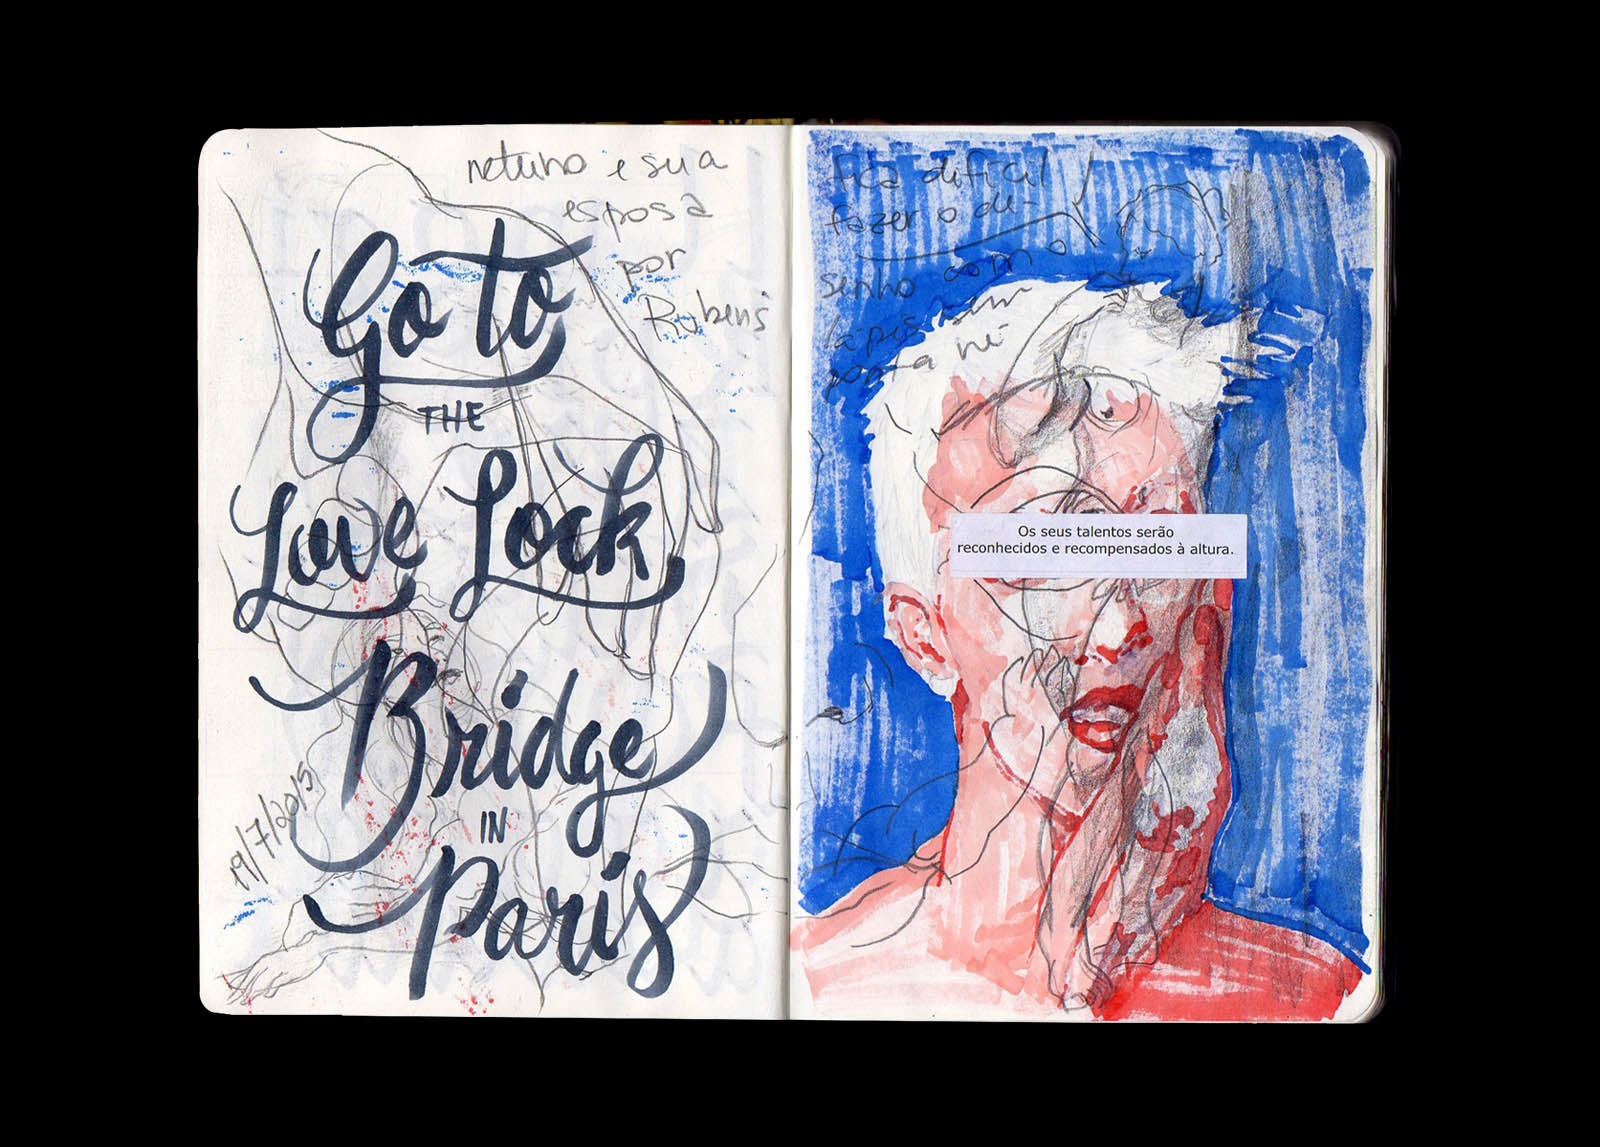 netuno e sua
esposa
por
Rubens
Go to
THE
Love Lock
Bridge
IN
Paris
19/7/2015
fica difícil
fazer o de-
senho com o
lápis sem
ponta né
Os seus talentos serão
reconhecidos e recompensados à altura.